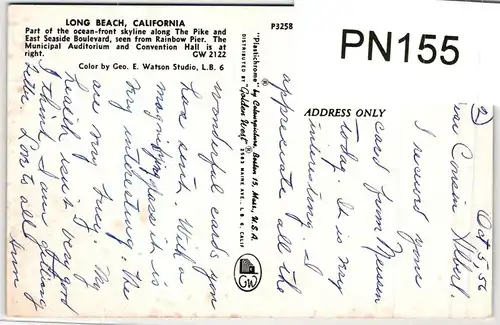 LONG BEACH, CALIFORNIA
Part of the ocean-front skyline along The Pike and
East Seaside Boulevard, seen from Rainbow Pier. The
Municipal Auditorium and Convention Hall is at
right. GW 2122
Color by Geo. E. Watson Studio, L.B. 6
P3258
PN155
"Plastichrome"® by Colourpicture, Boston 15, Mass., U.S.A.
DISTRIBUTED BY "Golden West"® 2583 MAINE AVE., L.B. 6, CALIF.
GW
ADDRESS ONLY
2)
Oct 5-56
Dear Cousin Albert.
I received your
card from
today. It is very
interesting. I
appreciate all the
wonderful cards you
have sent. With a
magnifying glass it is
very interesting. The
are my
health isn't very good
I think I am
Love to all